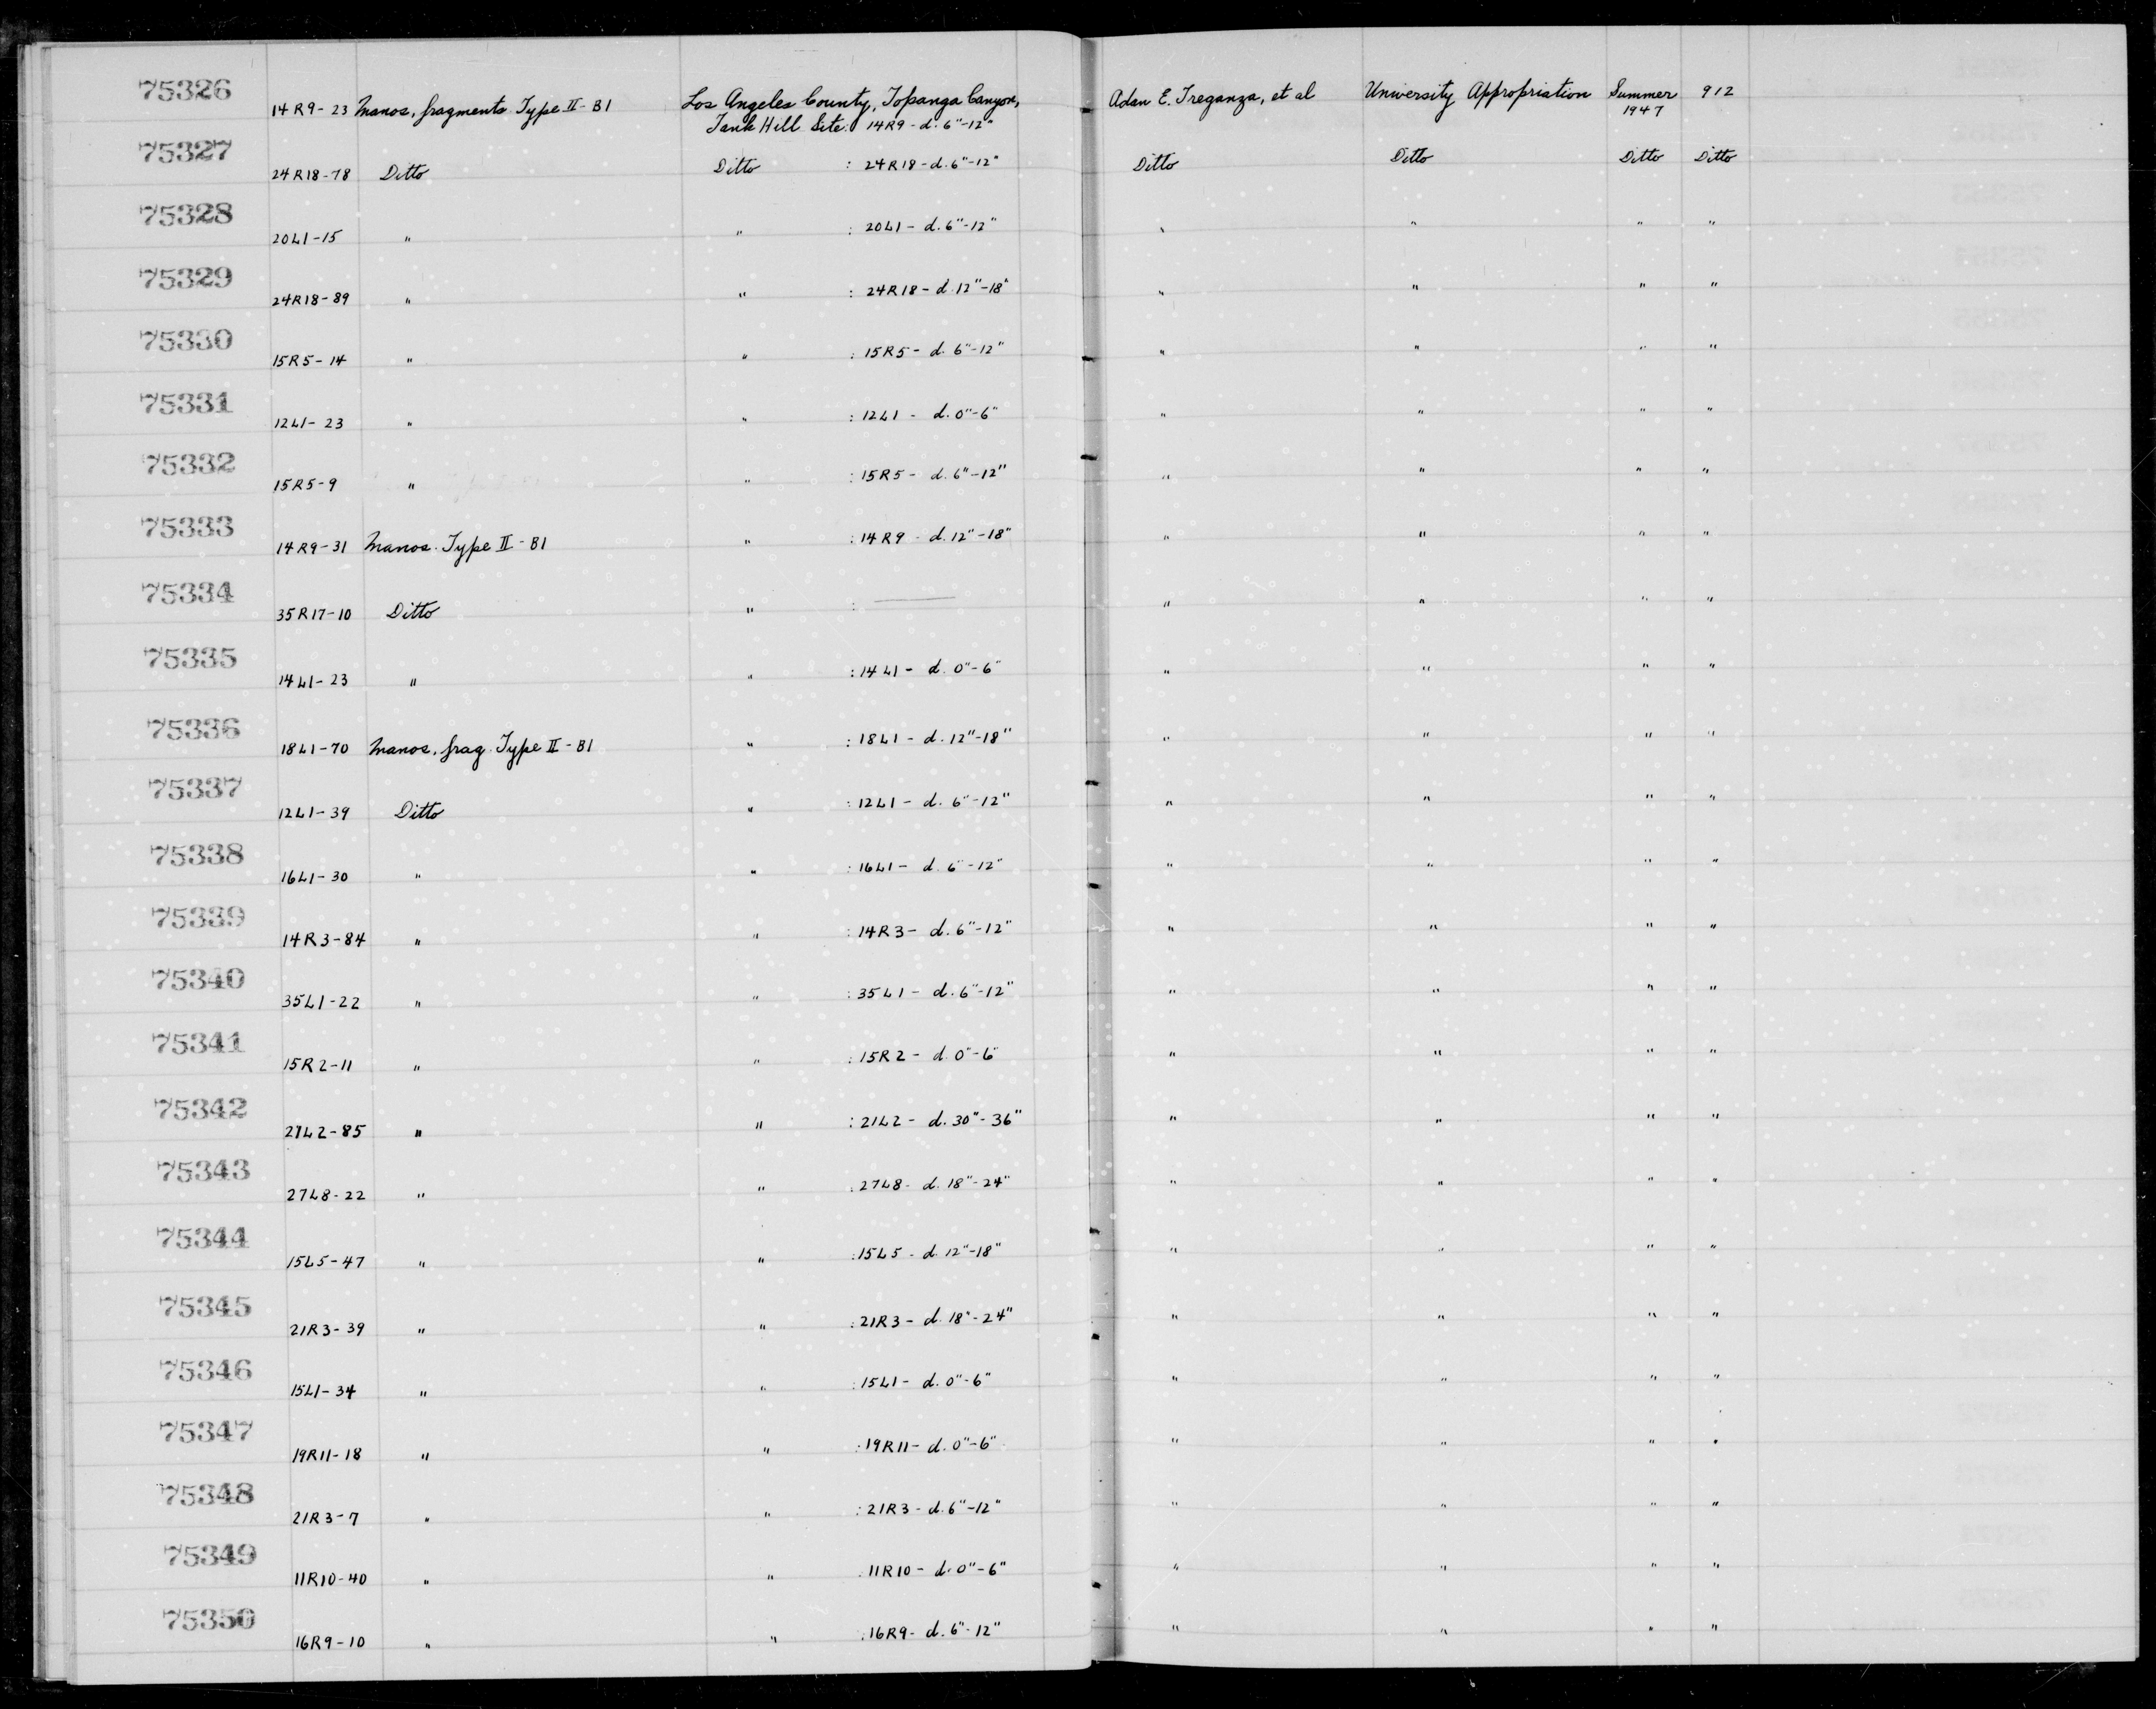 75326 14R9-23 Manos, fragments Type II-B1 Los Angeles County, Topanga Canyon, Adan E. Treganza, et al University Appropriation Summer 912
Tank Hill Site: 14R9-d. 6"-12" 1947
75327 24R18-78 Ditto Ditto : 24R18-d. 6"-12" Ditto Ditto Ditto Ditto
75328 20L1-15 " " : 20L1- d. 6"-12" " " " "
75329 24R18-89 " " : 24R18- d. 12"-18" " " " "
75330 15R5-14 " " : 15R5- d. 6"-12" " " " "
75331 12L1-23 " " : 12L1 - d. 0"-6" " " " "
75332 15R5-9 " " : 15R5- d. 6"-12" " " " "
75333 14R9-31 Manos. Type II-B1 " : 14R9 - d. 12"-18" " " " "
75334 35R17-10 Ditto " : — " " " "
75335 14L1-23 " " : 14L1- d. 0"-6" " " " "
75336 18L1-70 Manos, frag. Type II-B1 " : 18L1- d. 12"-18" " " " "
75337 12L1-39 Ditto " : 12L1- d. 6"-12" " " " "
75338 16L1-30 " " : 16L1- d. 6"-12" " " " "
75339 14R3-84 " " : 14R3- d. 6"-12" " " " "
75340 35L1-22 " " : 35L1- d. 6"-12" " " " "
75341 15R2-11 " " : 15R2- d. 0"-6" " " " "
75342 21L2-85 " " : 21L2- d. 30"-36" " " " "
75343 27L8-22 " " : 27L8- d. 18"-24" " " " "
75344 15L5-47 " " : 15L5- d. 12"-18" " " " "
75345 21R3-39 " " : 21R3- d. 18"-24" " " " "
75346 15L1-34 " " : 15L1- d. 0"-6" " " " "
75347 19R11-18 " " : 19R11- d. 0"-6" " " " "
75348 21R3-7 " " : 21R3- d. 6"-12" " " " "
75349 11R10-40 " " : 11R10- d. 0"-6" " " " "
75350 16R9-10 " " : 16R9- d. 6"-12" " " " "